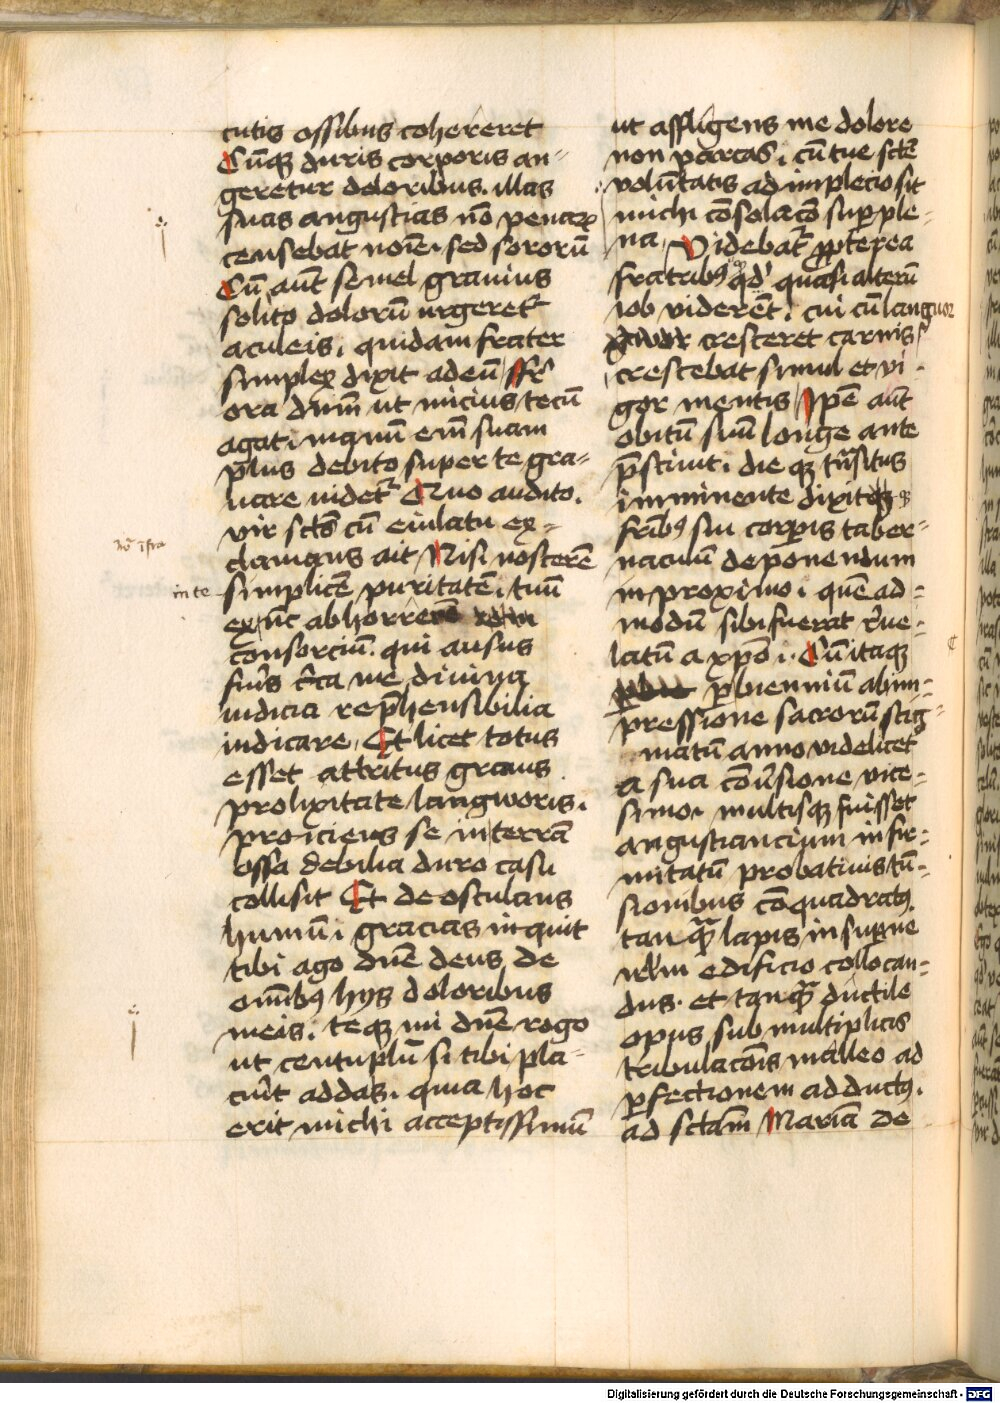 cutis ossibus cohereret
Cūq̄ duris corporis an-
geretur doloribus. illas
suas angustias nō penarꝝ
censebat noīe. sed sororū
Cū aūt semel gravius
solito dolorū urgeretᷣ
aculeis, quidam frater
simplex dixit ad eū ffr̄
ora dūm ut micius tecū
agat. manū em̄ suam
pl̄us debito super te gra-
uare uidetᷣ Quo audito.
vir sct̄s cū eiulatu ex-
clamans ait Nisi nosterē
in te simplicē puritatē. tuū
ex nūc abhorrerē
consorciū. qui ausus
fuīs cīrca me diuina
iudicia rep̄hensibilia
iudicare, Et licet totus
esset attritus graus
prolixitate langworis.
proiciens se in terrā
ossa debilia duro casu
collisit Et deosculans
humū. gracias inquit
tibi ago dn̄e deus de
omībꝰ hys doloribus
meis. teq̄ mi dn̄e rogo
ut centuplū si tibi pla-
cuīt addas. quia hoc
erit michi acceptissimū
nō īfra
ut affligens me dolore
non parcas. cū tue sctē
volūtatis adimplecio sit
michi cōsolacō superple-
na, Videbatᷣ ꝓpterea
fratribꝰ qd' quasi alterū
iob viderēt. cui cū languor
cresceret carnis
crescebat simul et vi-
gor mentis Ip̄e aūt
obitū suū longe ante
p̄sciuit. die q̄ trāsitus
imminente dixit
fribꝰ sui corꝑis taber-
naculū deponendum
in proximo. quē ad-
modū sibi fuerat r̄ue-
latū a xp̄o. Cū itaq̄
ꝑ biennium ab im-
pressione sacrorū stig-
matū anno videlicet
a sua cōūsione vice-
simo. multisq̄ fuisset
angustiancium infir-
mitatū probatiuis tū-
sionibus cōquadratꝰ.
tanq̄ lapis in suꝑne
ir̄lm edificio collocan-
dus. et tanq̄ ductile
opus sub multiplicis
tribulacōnis malleo ad
ꝑfectionem adductꝰ.
ad sctām Mariā de
Digitalisierung gefördert durch die Deutsche Forschungsgemeinschaft - DFG